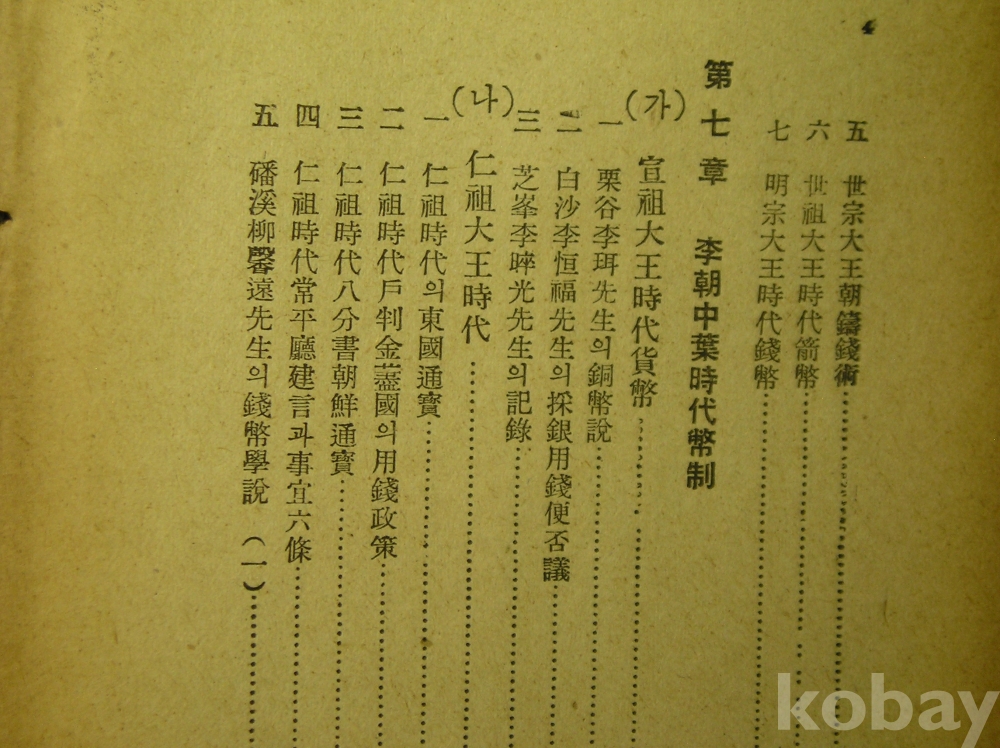 4
五 世宗大王朝鑄錢術
六 世祖大王時代箭幣
七 明宗大王時代錢幣
第七章 李朝中葉時代幣制
(가) 宣祖大王時代貨幣
一 栗谷李珥先生의銅幣說
二 白沙李恒福先生의採銀用錢便否議
三 芝峯李睟光先生의記錄
(나) 仁祖大王時代
一 仁祖時代의東國通寶
二 仁祖時代戶判金藎國의用錢政策
三 仁祖時代八分書朝鮮通寶
四 仁祖時代常平廳建言과事宜六條
五 磻溪柳馨遠先生의錢幣學說 (一)
kobay